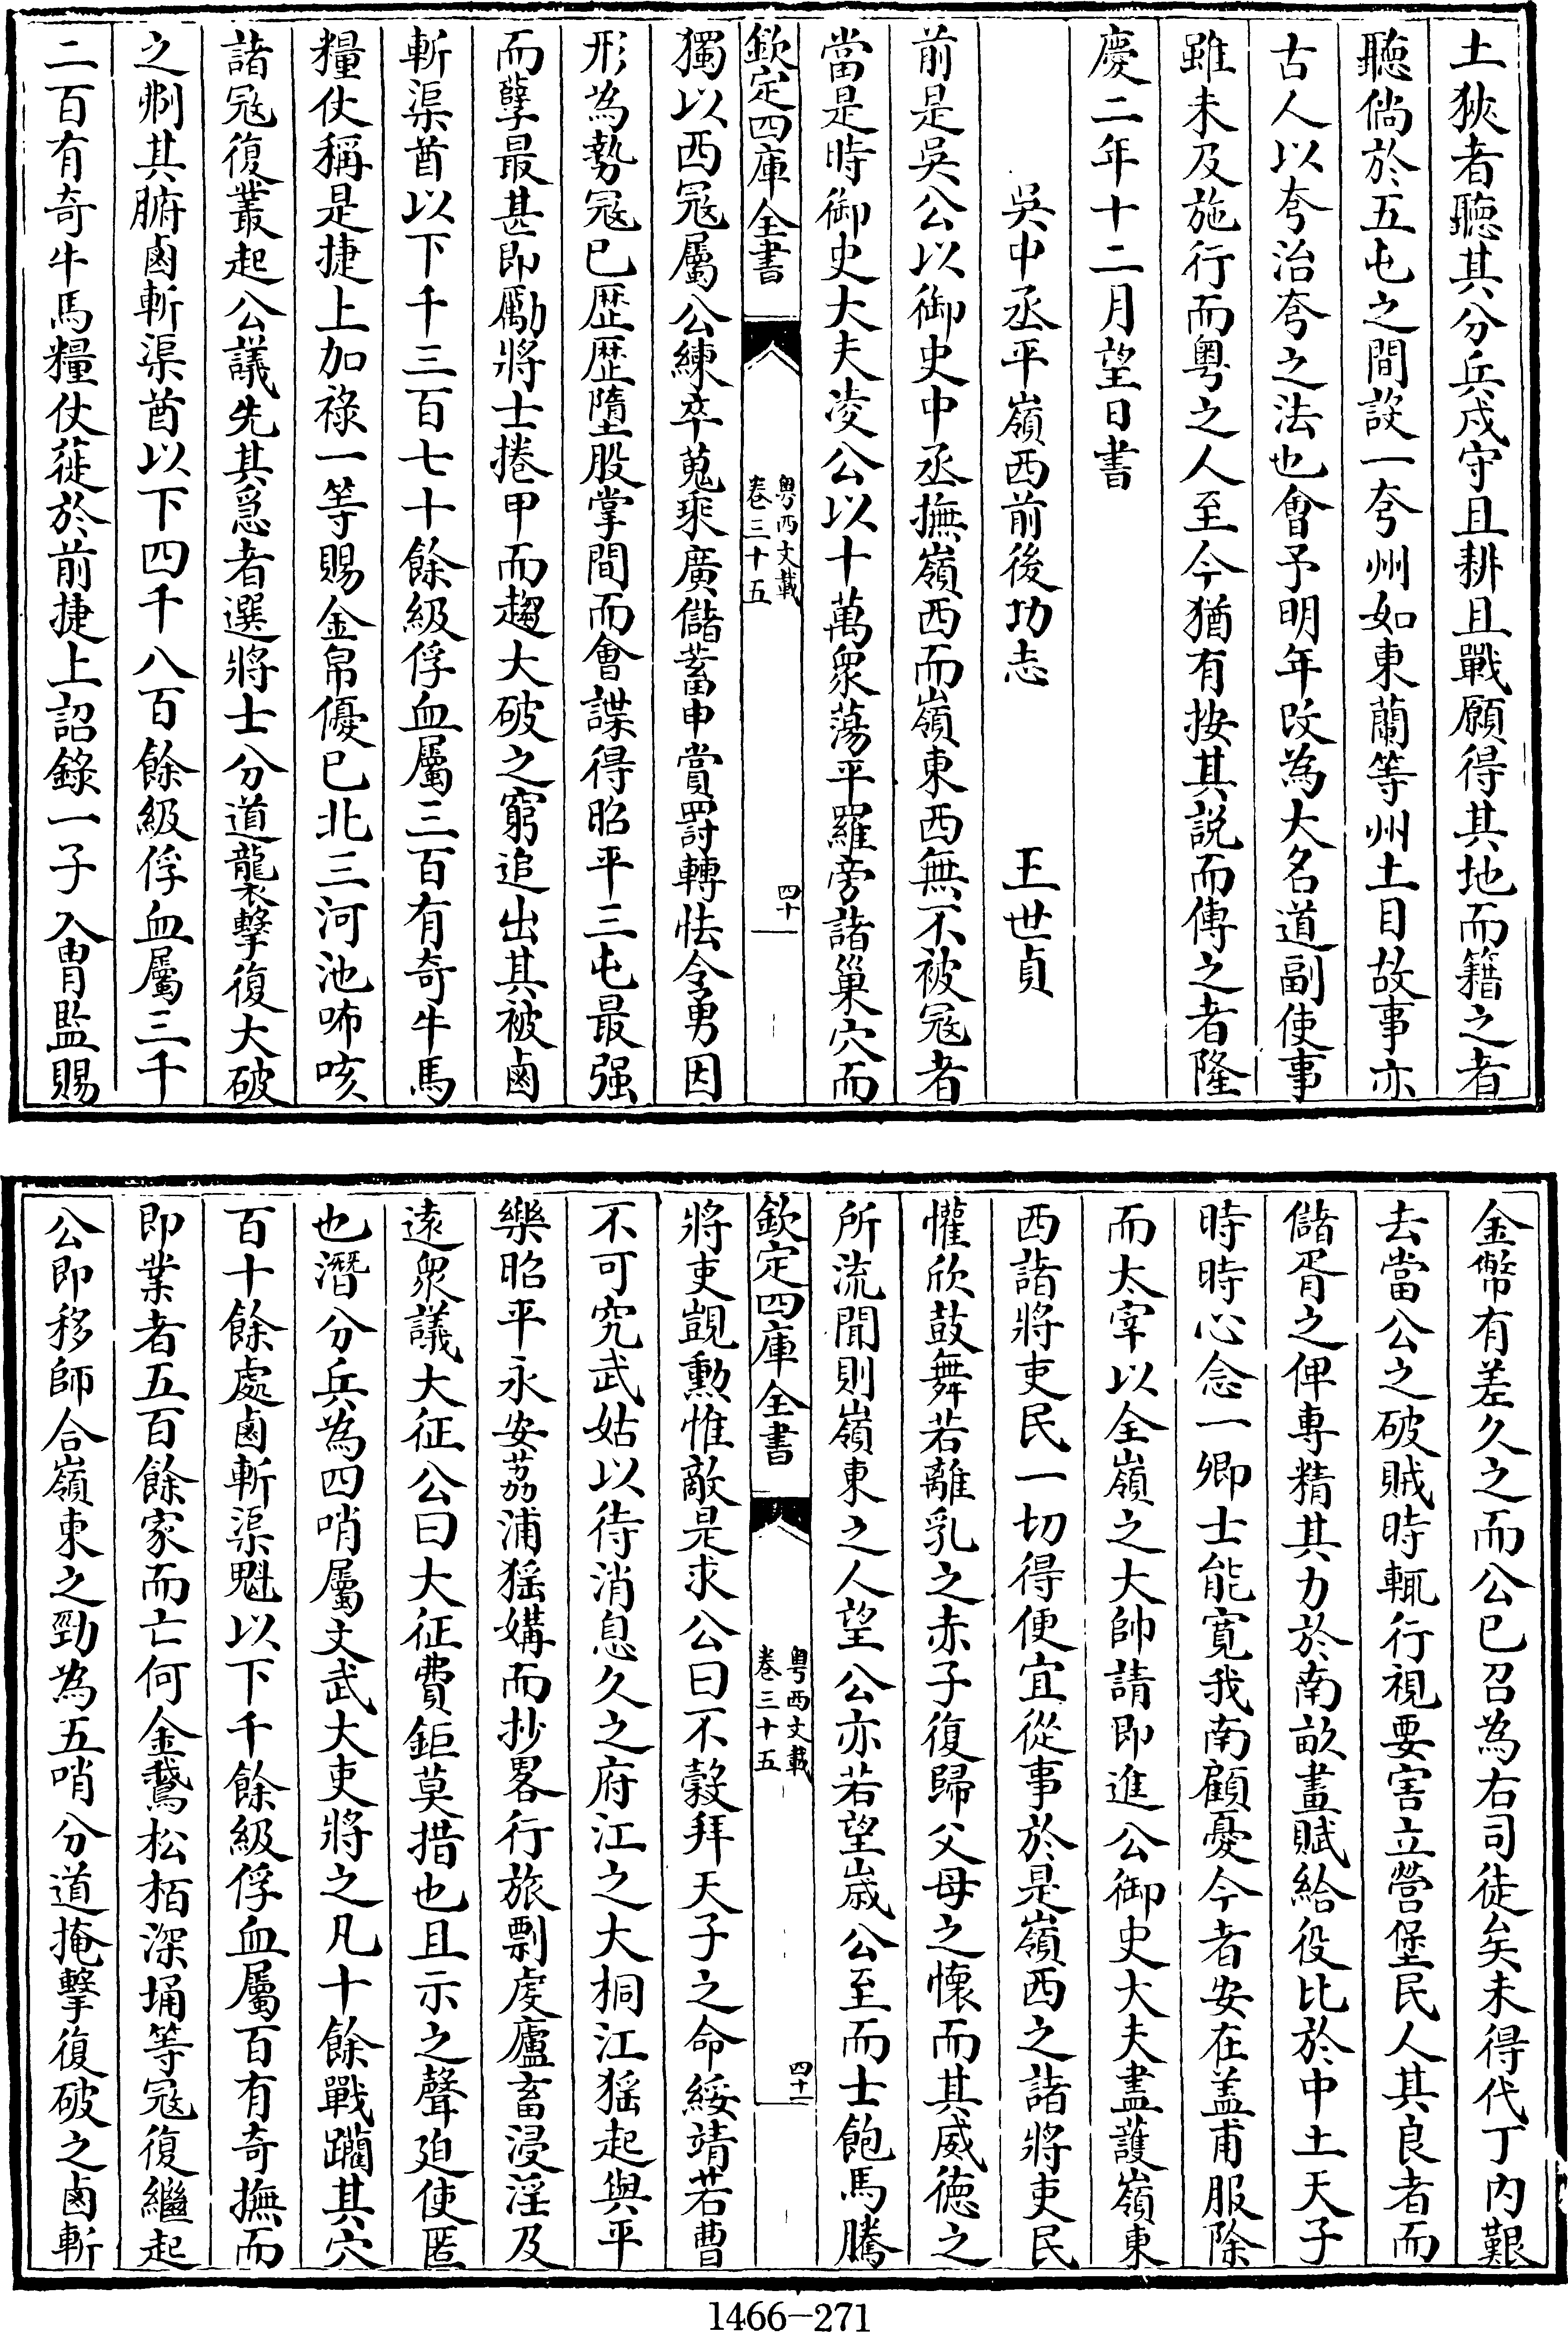 土狹者聽其分兵戍守且耕且戰願得其地而籍之者
聽倘於五屯之間設一夸州如東蘭等州土目故事亦
古人以夸治夸之法也會予明年改為大名道副使事
雖未及施行而粤之人至今猶有按其説而傳之者隆
慶二年十二月望日書
吳中丞平嶺西前後功志　王世貞
前是吳公以御史中丞撫嶺西而嶺東西無不被冦者
當是時御史大夫凌公以十萬衆蕩平羅旁諸巢穴而
欽定四庫全書
粤西文載
卷三十五
四十
獨以西冦屬公練卒蒐乘廣儲蓄申賞罸轉怯令勇因
形為勢冦已歴歴墮股掌間而會諜得昭平三屯最强
而孽最甚即勵將士捲甲而趨大破之窮追出其被鹵
斬渠酋以下千三百七十餘級俘血屬三百有奇牛馬
糧仗稱是捷上加祿一等賜金帛優已北三河池咘咳
諸冦復叢起公議先其急者選將士分道襲擊復大破
之刜其腑鹵斬渠酋以下四千八百餘級俘血屬三千
二百有奇牛馬糧仗蓰於前捷上詔錄一子入胄監賜
金幣有差久之而公已召為右司徒矣未得代丁内艱
去當公之破賊時輒行視要害立營堡民人其良者而
儲胥之俾専精其力於南畝畫賦給役比於中土天子
時時心念一卿士能寛我南顧憂今者安在盖甫服除
而太宰以全嶺之大帥請即進公御史大夫盡護嶺東
西諸將吏民一切得便宜從事於是嶺西之諸將吏民
懽欣鼓舞若離乳之赤子復歸父母之懷而其威德之
所流聞則嶺東之人望公亦若望歲公至而士飽馬騰
欽定四庫全書
粤西文載
卷三十五
四十一
將吏覬勲惟敵是求公曰不榖拜天子之命綏靖若曹
不可究武姑以待消息久之府江之大桐江猺起與平
樂昭平永安荔浦猺媾而抄畧行旅剽虔廬畜浸淫及
遠衆議大征公曰大征費鉅莫措也且示之聲廹使匿
也潛分兵為四哨屬文武大吏將之凡十餘戰躪其穴
百十餘處鹵斬渠魁以下千餘級俘血屬百有奇撫而
即業者五百餘家而亡何金鵞松栢深埇等冦復繼起
公即移師合嶺東之勁為五哨分道掩擊復破之鹵斬
1466-271